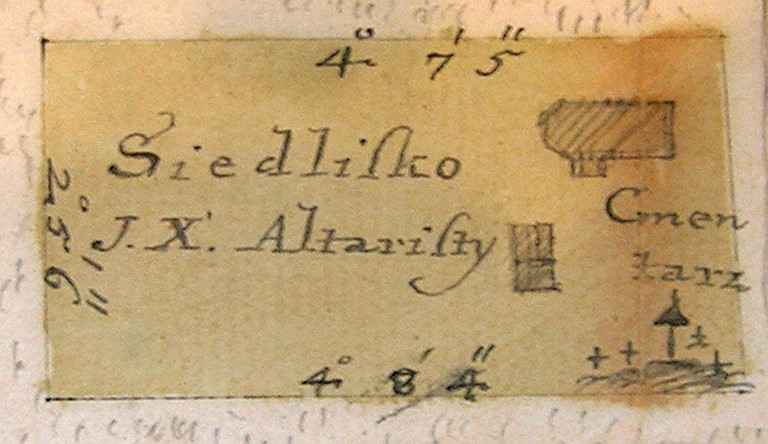 4° 7' 5"
Siedliſko
J. X. Altariſty
Cmen
tarz
2° 5' 6"
4° 8' 4"